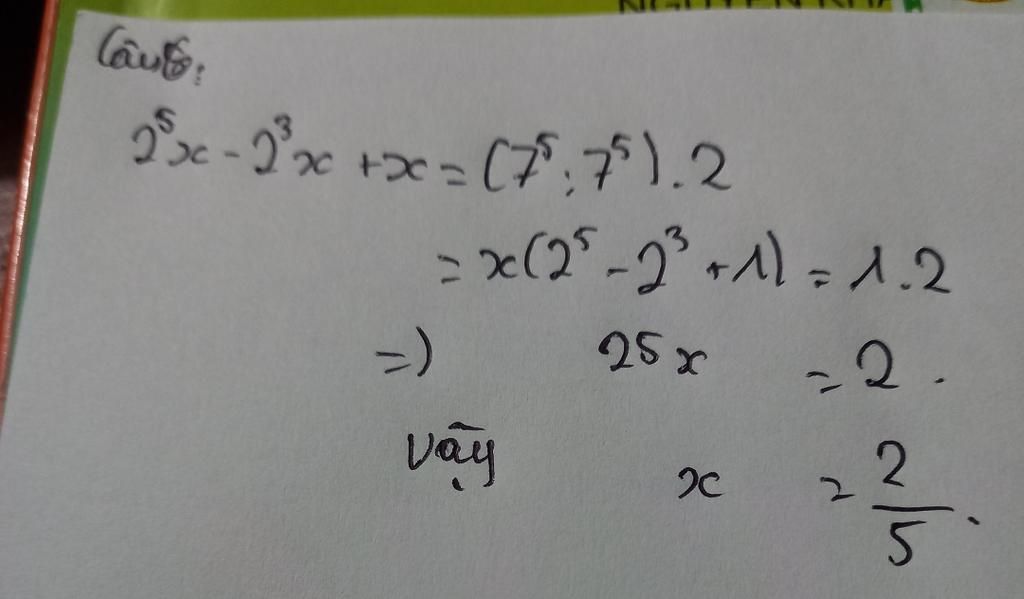 Câu 8:
2⁵x - 2³x + x = (7⁵ : 7⁵) . 2
= x(2⁵ - 2³ + 1) = 1.2
=) 25x = 2.
Vậy x = 2/5.